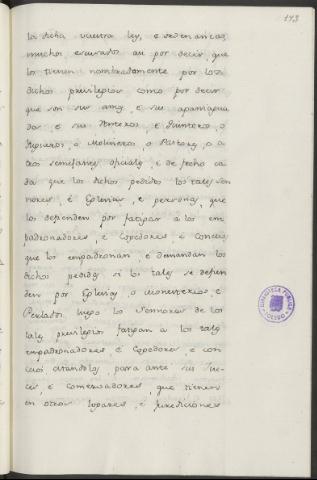 173
la dicha vuestra ley, e ordenanzas,
muchos escusados asi por decir, que
los tienen nombradamente por los
dichos previlegios como por decir
que son sus amos, e sus apanigua
dos, e sus Renteros, e Quinteros, o
Yugueros, o Molineros, o Pastores, o a
otros semejantes oficiales, e de fecho ca
da que los dichos pedidos los tales Se
ñores, e Eglesias, e personas, que
los defienden por fatigar a los em
padronadores, e Cogedores, e Conceios
que los empadronan, e demandan los
dichos pedidos, si los tales se defien
den por Eglesias, o Monesterios, e
Perlados, luego los Sennores de los
tales previlegios fatigan a los tales
empadronadores, e Cogedores, e con
ceios, citandolos, para ante sus Jue
ces, e Conservadores, que tienen
en otros logares, e Juridiciones
BIBLIOTECA PUBLICA
TOLEDO